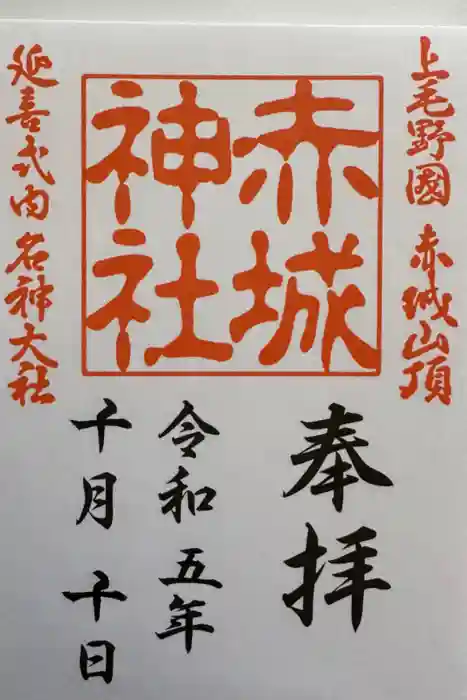 上毛野國 赤城山頂
赤城
神社
延喜式内名神大社
奉拝
令和五年
千月千日